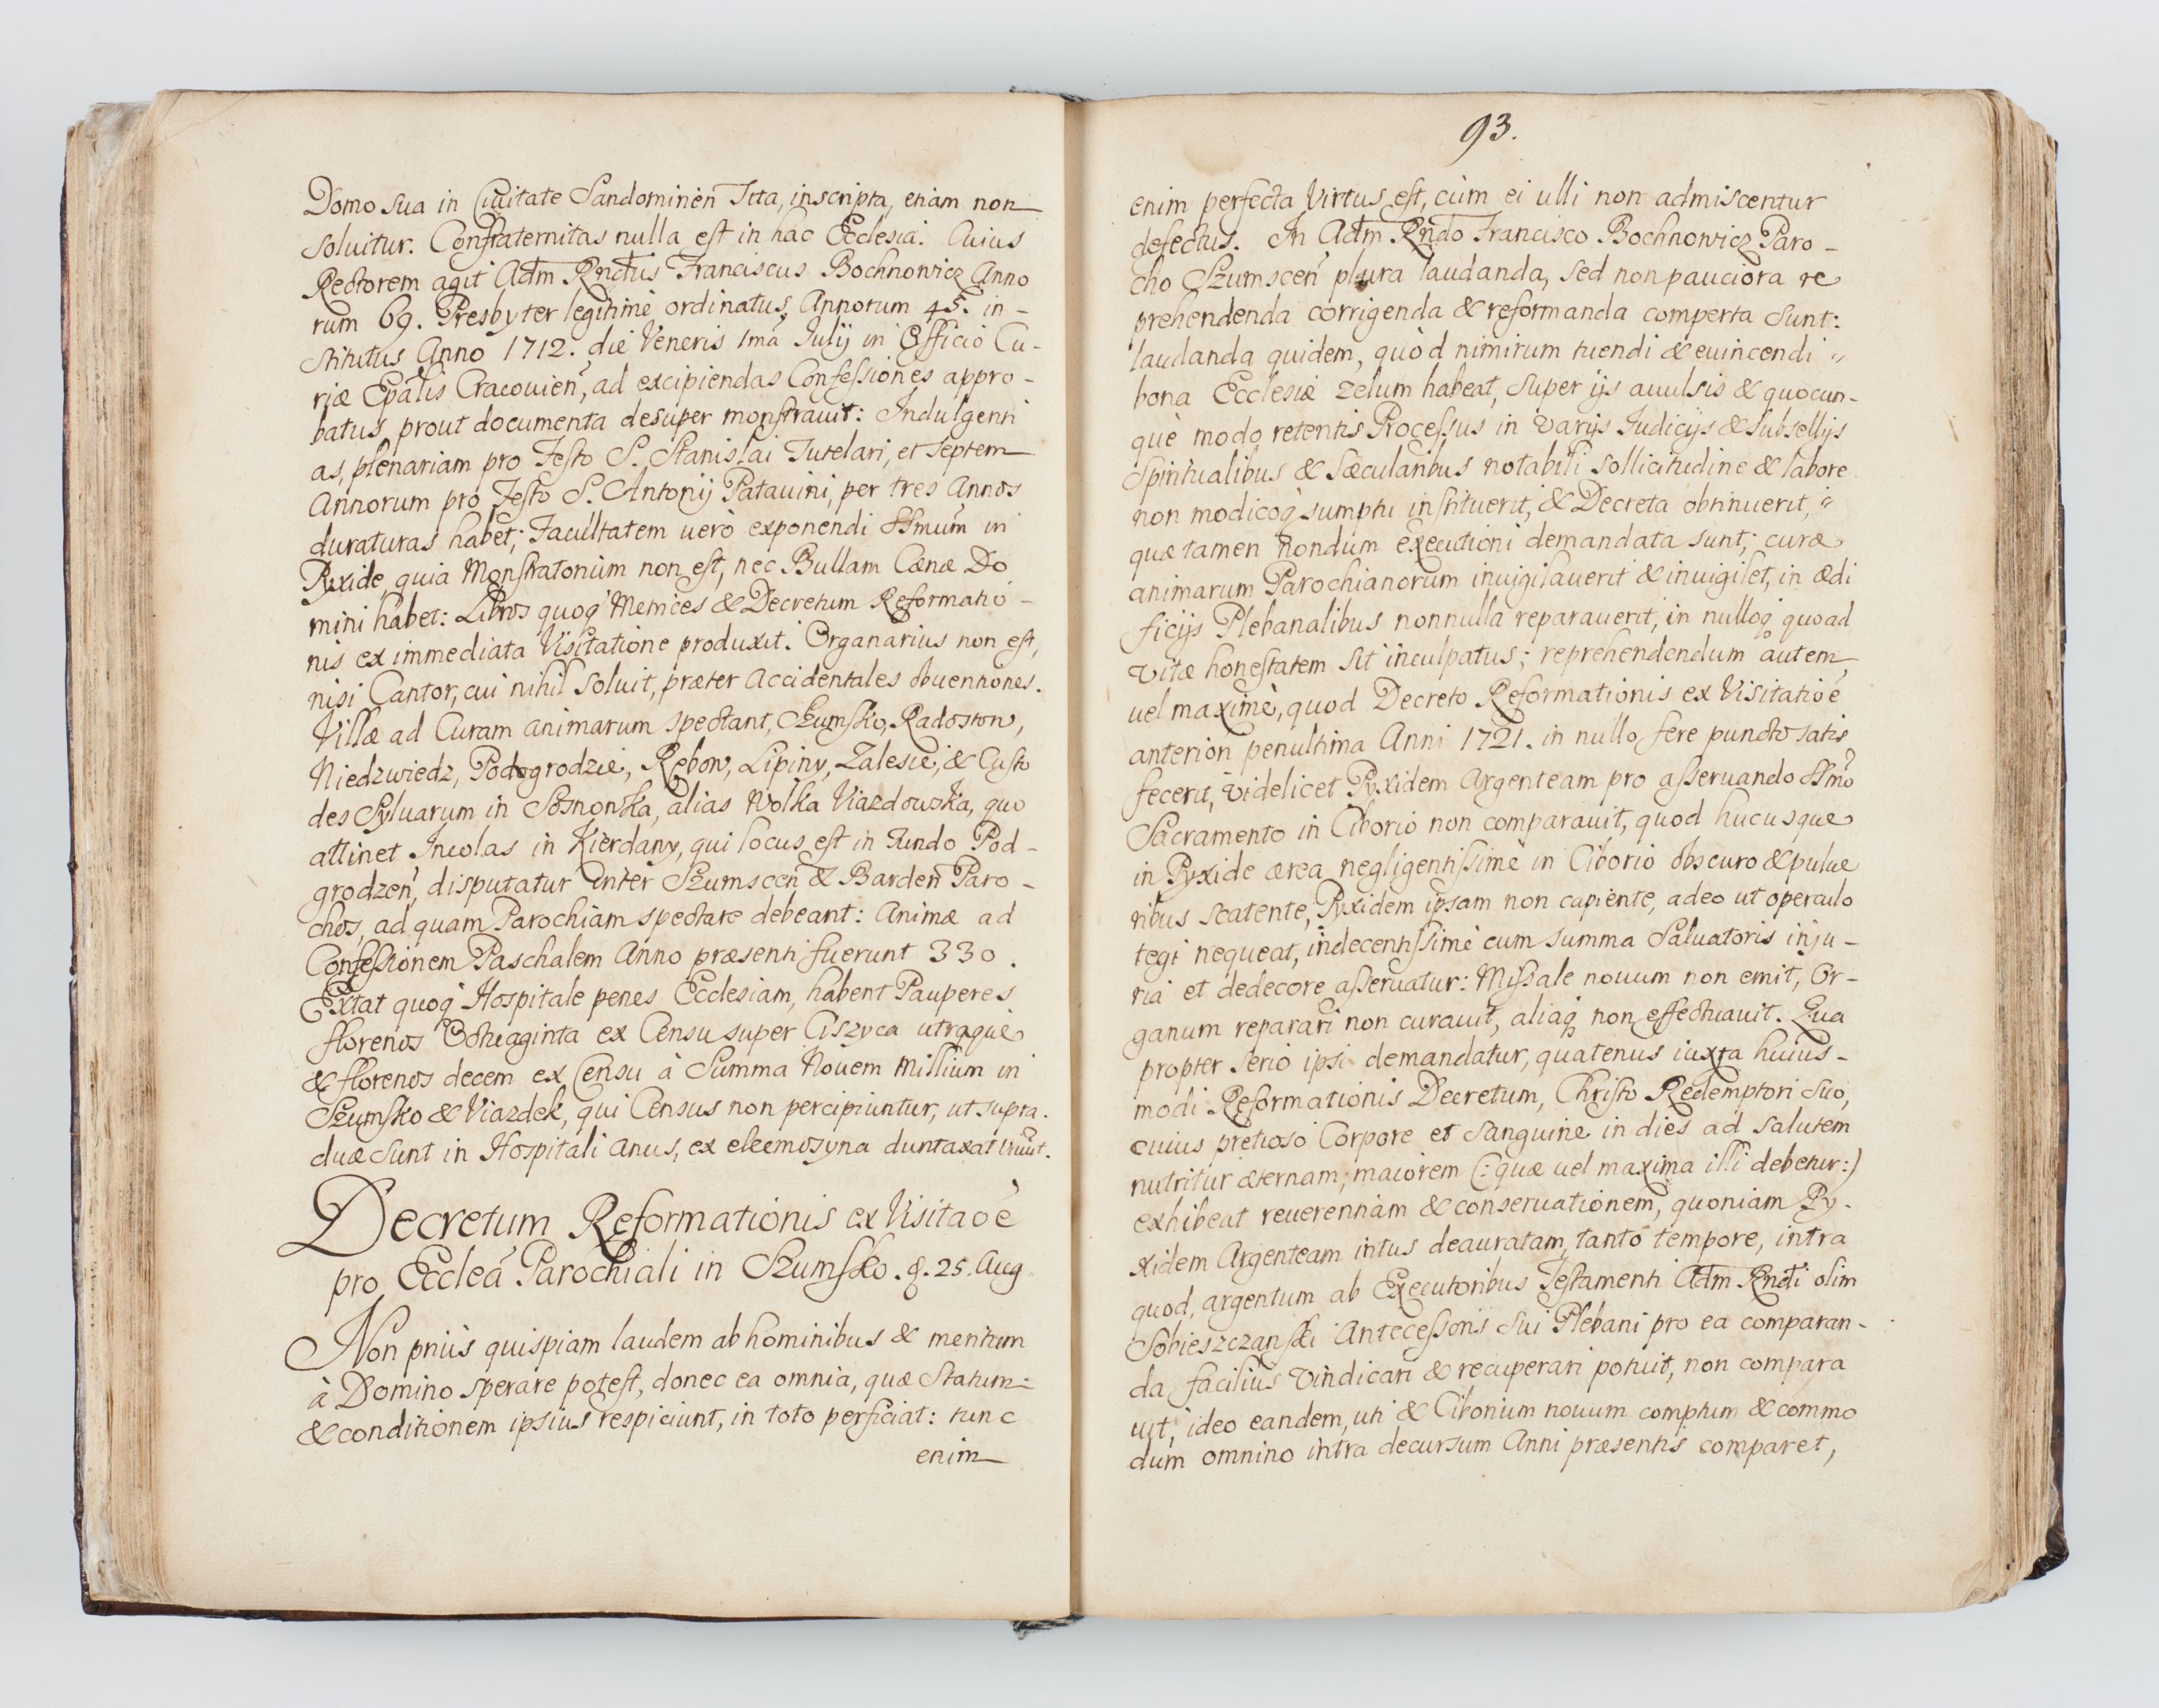 Domo sua in Ciuitate Sandominien̄ Sita, inscripta, etiam non
soluitur. Confraternitas nulla est in hac Ecclesia. Cuius
Rectorem agit Adm̄ Rn̄dus Franciscus Bochnowicz Anno
rum 69. Presbyter legitimè ordinatus, Annorum 45. in-
stitutus Anno 1712. die Veneris 1mâ Iulij in Officio Cu-
riæ Ep̄alis Cracouien̄, ad excipiendas Confessiones appro-
batus prout documenta desuper monstrauit: Indulgenti
as, plenariam pro Festo S. Stanislai Tutelari, et septem
Annorum pro Festo S. Antonij Patauini, per tres Annos
duraturas habet; Facultatem uerò exponendi SSmūm in
Pyxide, quia Monstratorium non est, nec Bullam Cænæ Do
mini habet: Libros quoq́ Metrices & Decretum Reformatio-
nis ex immediata Visitatione produxit. Organarius non est,
nisi Cantor, cui nihil soluit, præter Accidentales obuentiones.
Villæ ad Curam animarum spectant, Szumsko, Radostow,
Niedzwiedz, Podogrodzie, Rębow, Lipiny, Zalesie, & Custo
des Syluarum in Sosnowska, alias Wolka Wiazdowska, quo
attinet Incolas in Kierdany, qui locus est in Fundo Pod-
grodzen̄, disputatur inter Szumscen̄ & Barden̄ Paro-
chos, ad quam Parochiam spectare debeant: Animæ ad
Confessionem Paschalem Anno præsenti fuerunt 330.
Extat quoq́ Hospitale penes Ecclesiam, habent Pauperes
florenos Octuaginta ex Censu super Ciszyca utraque
& florenos decem ex Censu à Summa Nouem Millium in
Szumsko & Viazdek, qui Census non percipiuntur, ut supra.
duæ sunt in Hospitali Anus, ex eleemosyna duntaxat viuūt.
Decretum Reformationis ex Visitaōe
pro Eccleā Parochiali in Szumsko. d. 25. Aug
Non priùs quispiam laudem ab hominibus & meritum
à Domino sperare potest, donec ea omnia, quæ Statum=
& conditionem ipsius respiciunt, in toto perficiat: tunc
enim
93.
enim perfecta Virtus est, cùm ei ulli non admiscentur
defectus. In Adm̄ Rn̄do Francisco Bochnowicz Paro-
cho Szumscen̄ plura laudanda, sed non pauciora re
prehendenda corrigenda & reformanda comperta sunt:
laudanda quidem, quòd nimirum tuendi & euincendi "
bona Ecclesiæ zelum habeat, super ijs auulsis & quocun-
què modo retentis Processus in varijs Iudicijs & Subsellijs
Spiritualibus & Sæcularibus notabili sollicitudine & labore
non modicoq́ sumptu instituerit, & Decreta obtinuerit, "
quæ tamen nondum executioni demandata sunt; curæ
animarum Parochianorum inuigilauerit & inuigilet, in ædi
ficijs Plebanalibus nonnulla reparauerit, in nulloq́ quoad
vitæ honestatem sit inculpatus; reprehendendum autem
uel maximè, quod Decreto Reformationis ex Visitatiōe
anteriori penultima Anni 1721. in nullo fere puncto satis
fecerit, videlicet Pyxidem Argenteam pro asseruando SSmō
Sacramento in Ciborio non comparauit, quod hucusque
in Pyxide ærea negligentissimè in Ciborio obscuro & pulue
ribus scatente, Pyxidem ipsam non capiente, adeo ut operculo
tegi nequeat, indecentissimè cum summa Saluatoris inju-
ria et dedecore asseruatur: Missale nouum non emit, Or-
ganum reparari non curauit, aliaq́ non effectuauit. Qua
propter serio ipsi demandatur, quatenus iuxta huius-
modi Reformationis Decretum, Christo Redemptori suo,
cuius pretioso Corpore et Sanguine in dies ad salutem
nutritur æternam, maiorem (: quæ uel maxima illi debetur:)
exhibeat reuerentiam & conseruationem, quoniam Py-
xidem Argenteam intus deauratam, tantō tempore, intra
quod, argentum ab Executoribus Testamenti Adm̄ Rn̄di olim
Sobieszczanski Antecessoris sui Plebani pro ea comparan-
da facilius vindicari & recuperari potuit, non compara
uit, ideo eandem, uti & Ciborium nouum comptum & commo
dum omnino intra decursum Anni præsentis comparet,